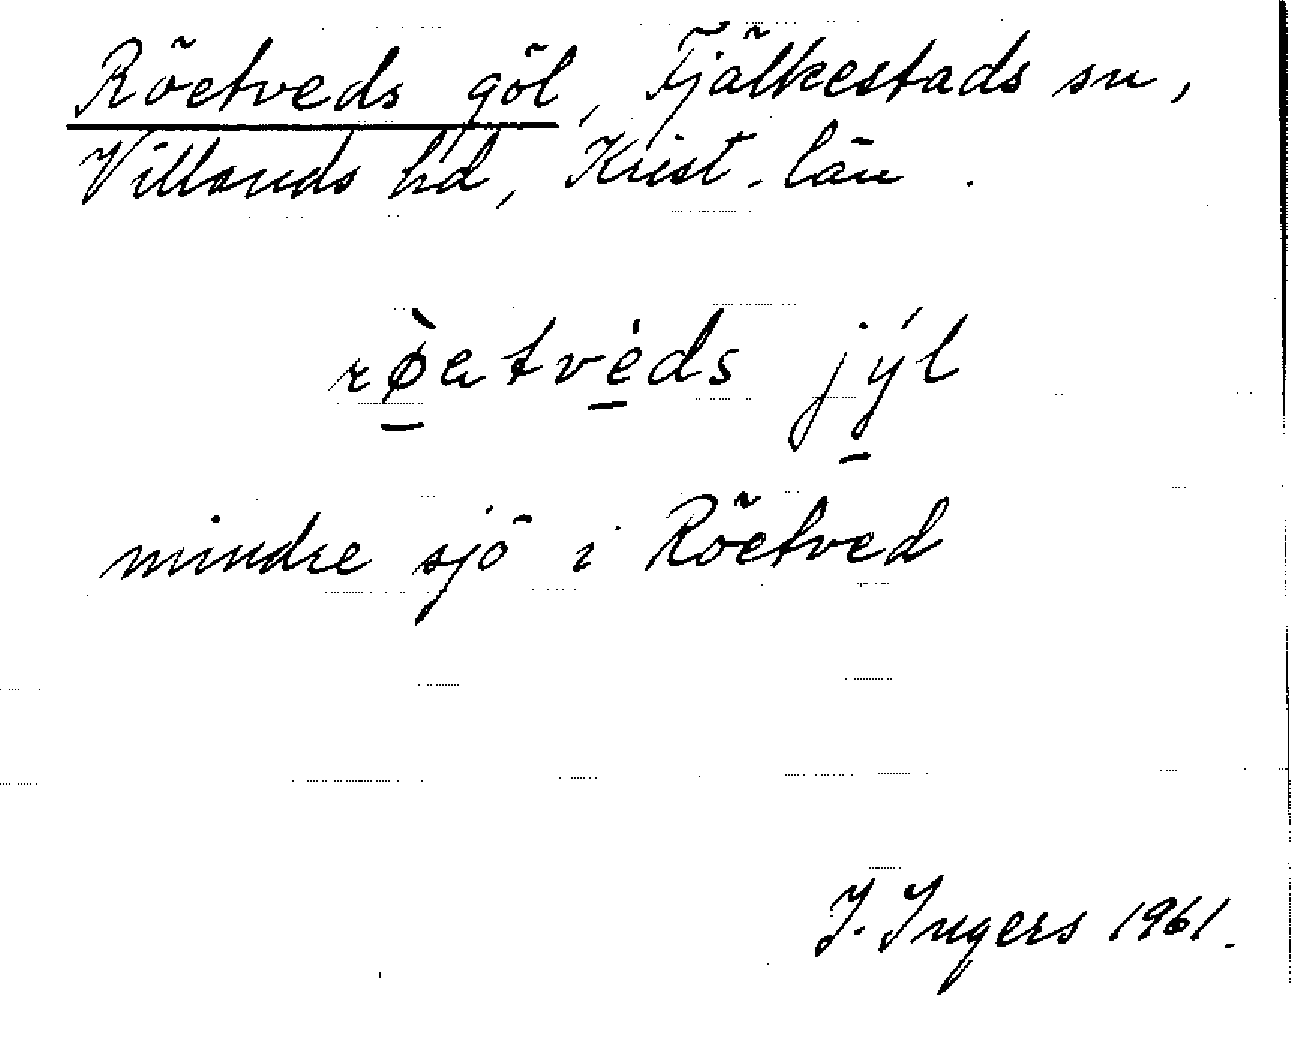 Röetveds göl, Fjälkestads sn,
Villands hd, Krist. län.
rø̀atvèds jýl
mindre sjö i Röetved
I. Ingers 1961.